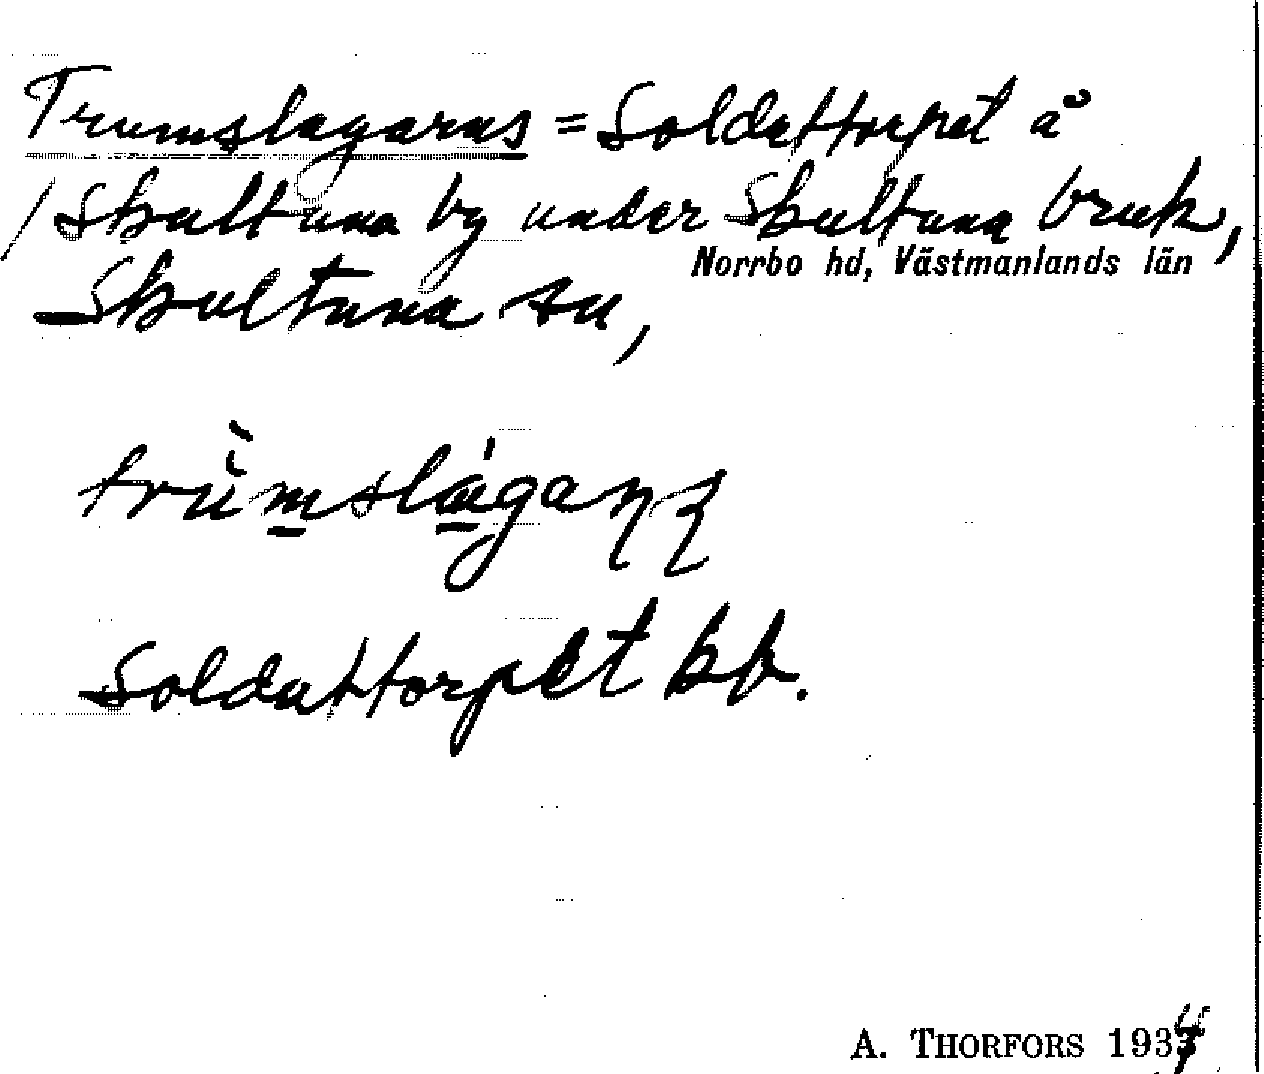 Trumslagarns = Soldattorpet å
/ Skultuna by under Skultuna bruk,
Norrbo hd, Västmanlands län
Skultuna sn,
Soldattorpet kb.
A. THORFORS 1934